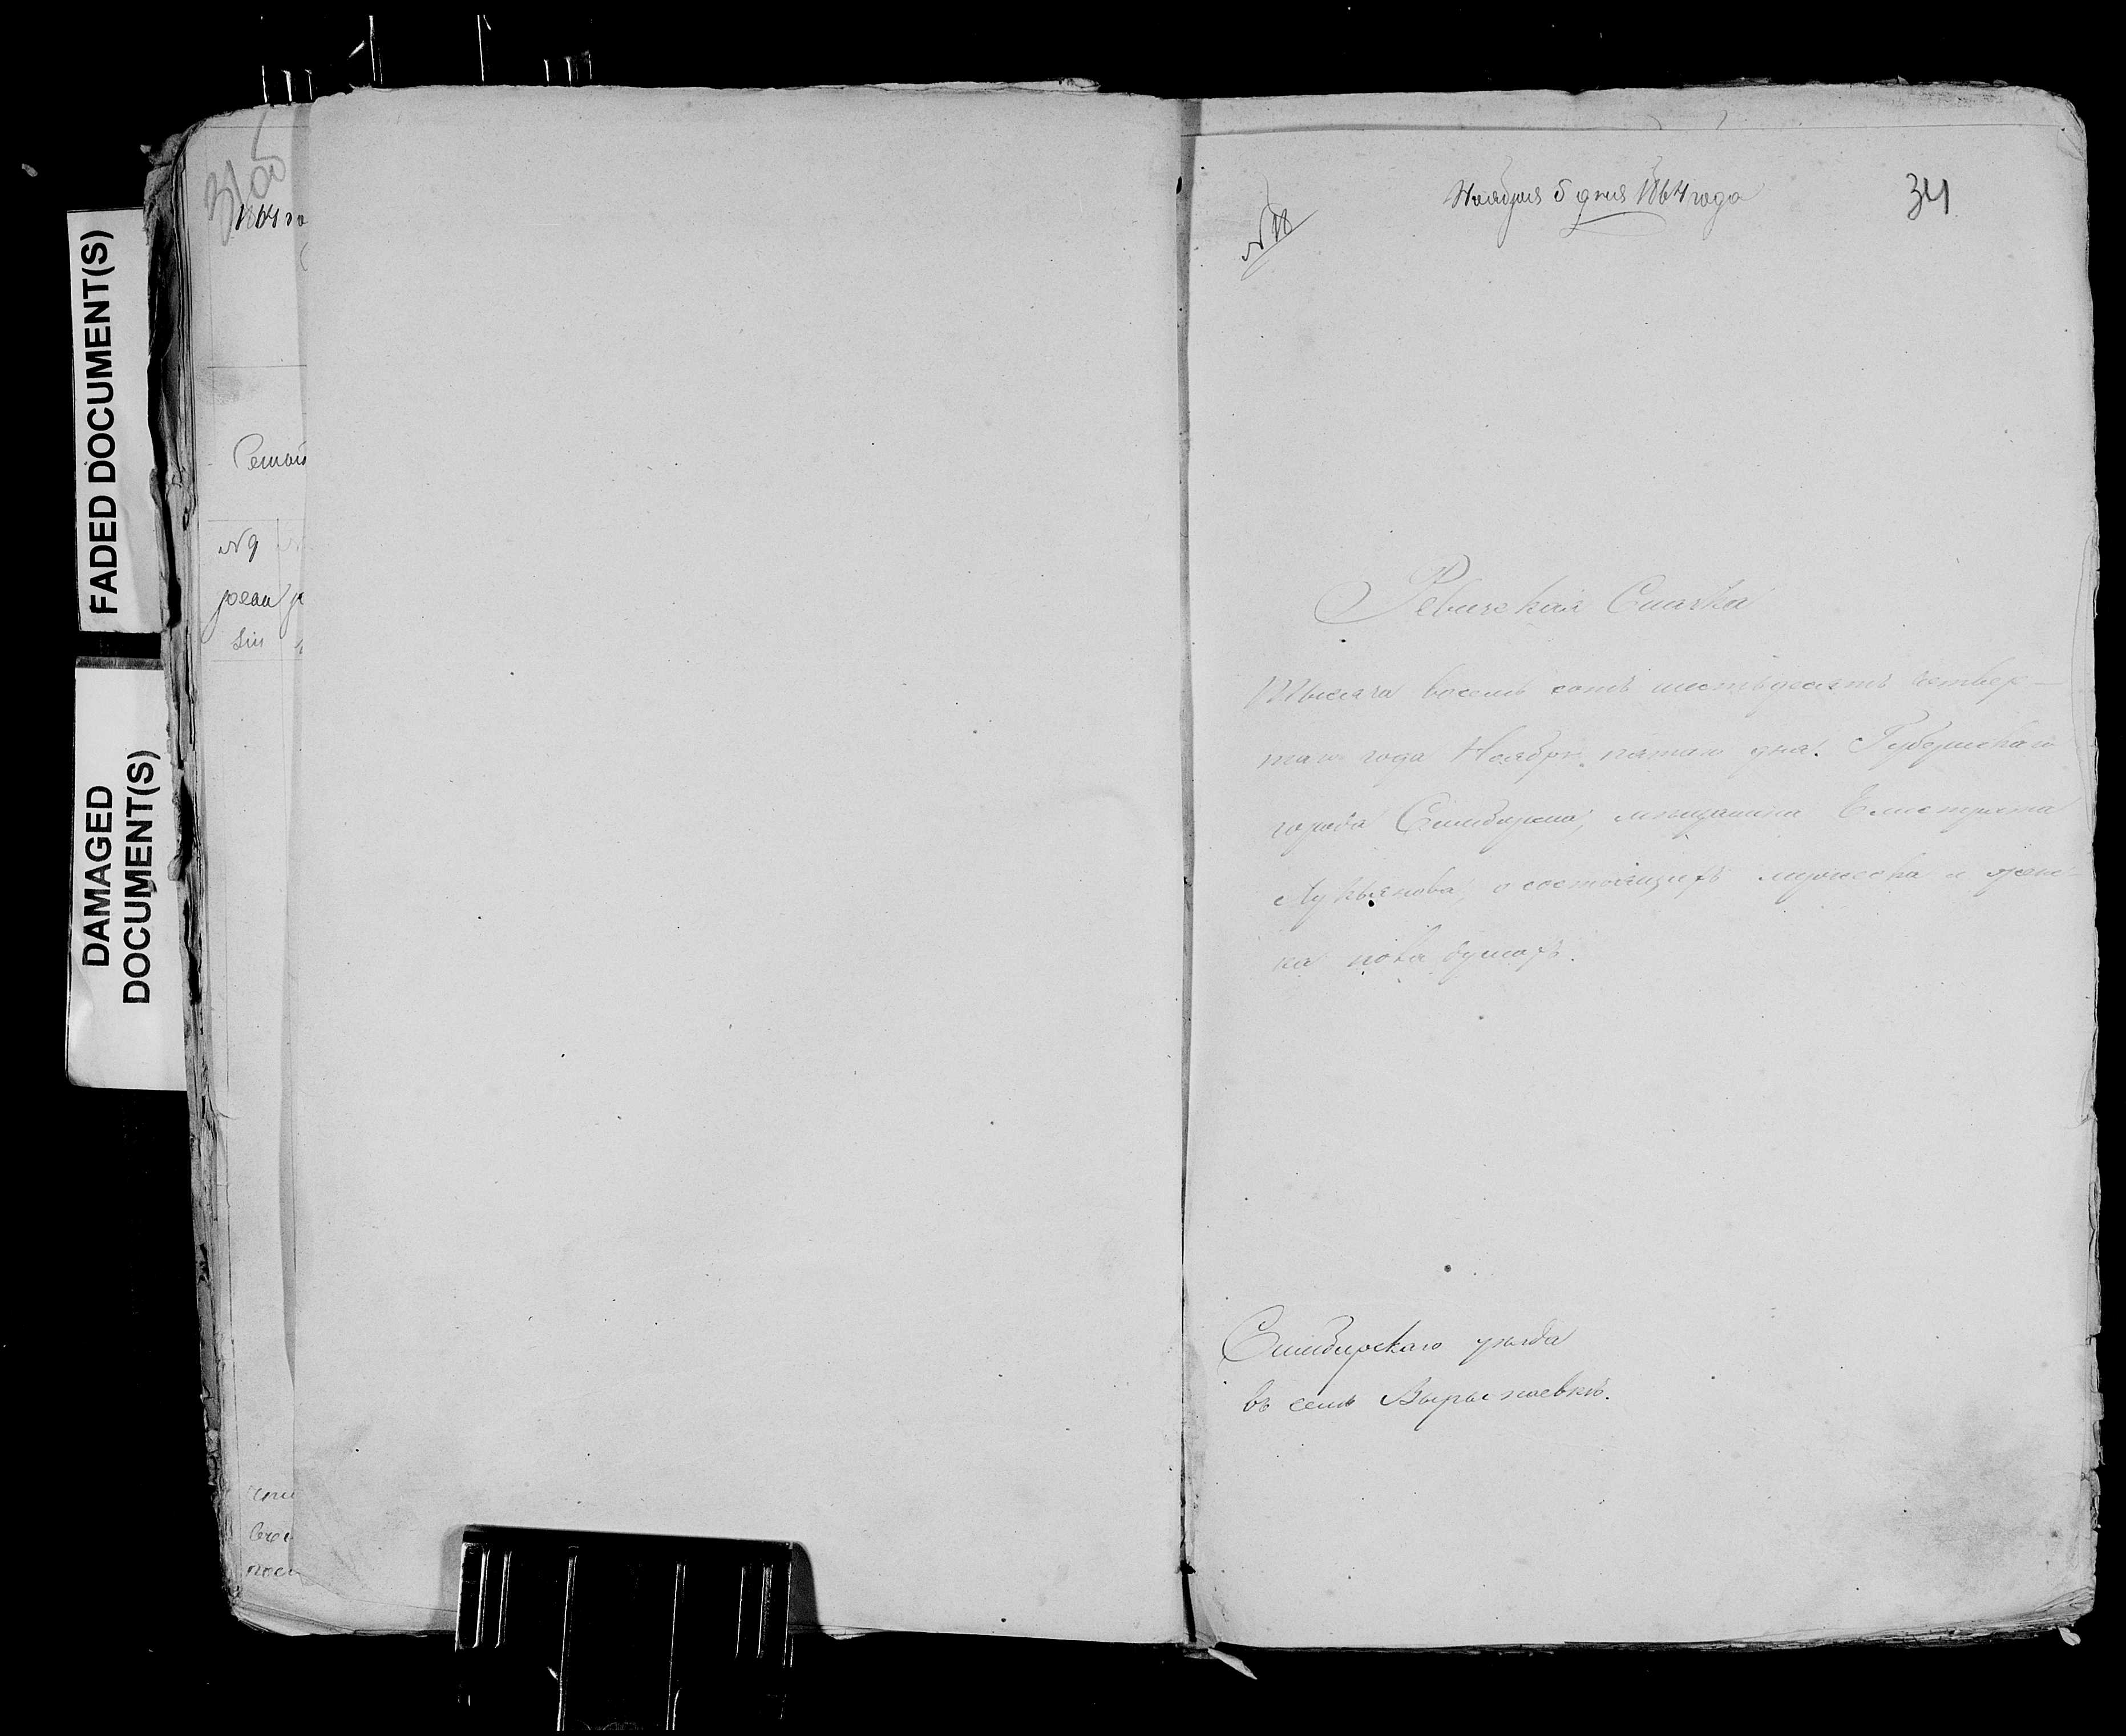 FADED DOCUMENT(S)
DAMAGED
DOCUMENT(S)
31об
1864 го
Семьи
№ 9
реви
Ноября 5 дня 1864 года
34
Ревизская Сказка
Тысяча восемь сотъ шестьдесятъ четвер-
таго года Ноября пятаго дня. Губернскаго
города Симбирска, мещанина Елистрата
Лукьянова, о состоящихъ мужеска и женс-
ка пола душахъ.
Симбирскаго уѣзда
въ селѣ Вырыпаевкѣ.